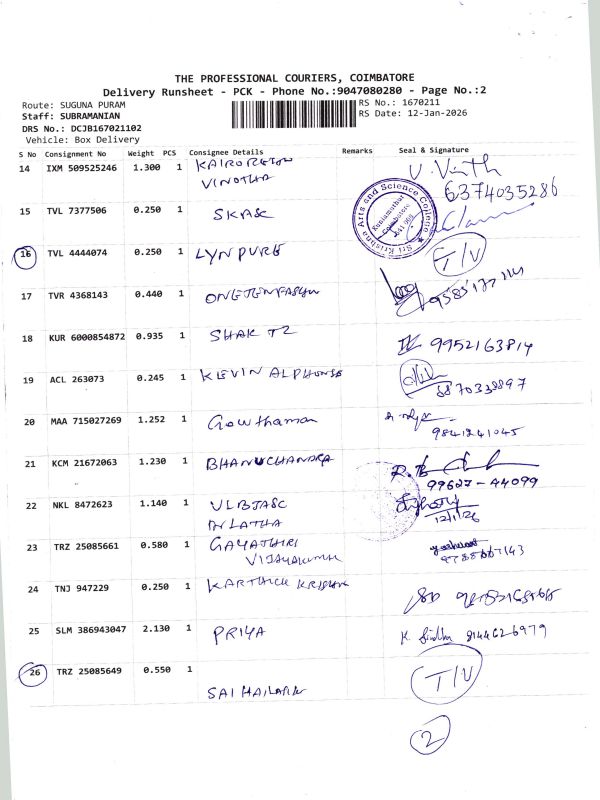 THE PROFESSIONAL COURIERS, COIMBATORE
Delivery Runsheet - PCK - Phone No.:9047080280 - Page No.:2
Route: SUGUNA PURAM
RS No.: 1670211
Staff: SUBRAMANIAN
RS Date: 12-Jan-2026
DRS No.: DCJB167021102
Vehicle: Box Delivery
S No Consignment No Weight PCS Consignee Details Remarks Seal & Signature
14 IXM 509525246 1.300 1
VINOTHA 6374035286
15 TVL 7377506 0.250 1 SKASC
Sri Krishna Arts and Science College
Kuniamuthur
Coimbatore
641 008
16 TVL 4444074 0.250 1 LYNPURE T/V
17 TVR 4368143 0.440 1
18 KUR 6000854872 0.935 1 SHAK TZ 9952163814
19 ACL 263073 0.245 1 KLEVIN ALPHONSE 8870338897
20 MAA 715027269 1.252 1 Gowthaman 9841241045
21 KCM 21672063 1.230 1 BHANUCHANDRA
99627-44099
22 NKL 8472623 1.140 1 VLBJASC
12/1/26
23 TRZ 25085661 0.580 1 GAYATHIRI
VIJAYAKUMAR
24 TNJ 947229 0.250 1 KARTHICK KRISHNA
25 SLM 386943047 2.130 1 PRIYA K. Sindhu 9144626979
26 TRZ 25085649 0.550 1 T/V
2